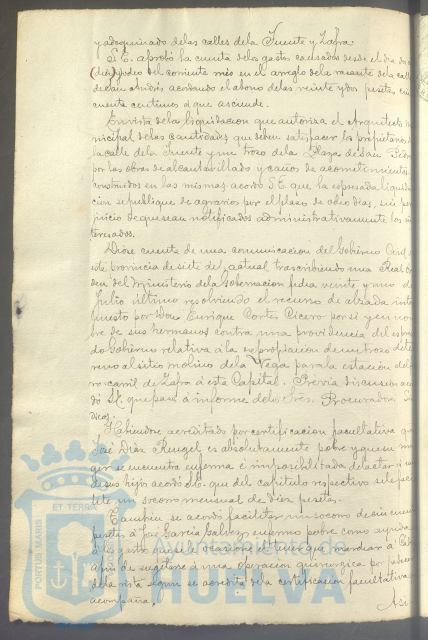 y adoquinado de las calles de la Fuente y Zafra.
S. E. aprobó la cuenta de los gastos causados desde el día
del corriente mes en el arreglo de la de la calle
acordando el abono de las veinte y dos pesetas cin
cuenta centimos á que asciende.
En vista de la liquidacion que autoriza el Arquitecto mu
nicipal de las cantidades que deben satisfacer los propietarios de
la calle de la Fuente y un trozo de la Plaza de San Pedro
por las obras de alcantarillado y caños de acometimiento
construidos en las mismas acordó S. E. que la expresada liquida
cion se publique de agravios por el plazo de ocho días, sin per
juicio de que sean notificados administrativamente los in
teresados.
Diose cuenta de una comunicacion del Gobierno Civil de
esta provincia de siete del actual trascribiendo una Real Or
den del Ministerio de la Gobernacion fecha veinte y uno de
Julio último resolviendo el recurso de alzada inter
puesto por Don Enrique Cortés Cicero por si y en nom
bre de sus hermanos contra una providencia del expresa
do Gobierno relativa á la expropiacion de un trozo de te
rreno al sitio molino de la Vega para la estacion del fe
rro carril de Zafra á esta Capital. Previa discusion acor
dó S. E. que pase á informe de los Sres. Procuradores Sin
dicos.
Habiendose acreditado por certificacion facultativa que
José Diaz Rengel es absolutamente pobre y que su mu
ger se encuentra enferma é imposibilitada de lactar á uno
de sus hijos acordó S. E. que del capitulo respectivo se le faci
lite un socorro mensual de diez pesetas.
Tambien se acordó facilitar un socorro de cincuenta
pesetas á José Garcia Galvez enfermo pobre como ayuda
á los gastos que le ocasione el tener que marchar á Cadiz
a fin de sugetarse á una operacion quirurgica por padecer
de la vista segun se acredita de la certificacion facultativa que
acompaña.
Asi
PORTUS MARIS ET TERRAE CUSTODIA
Ayuntamiento de
HUELVA